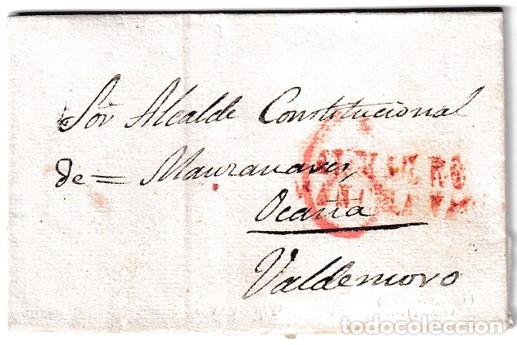 Sor Alcalde Constitucional
de = Manzanares
Ocaña
Valdemoro
todocoleccion.net